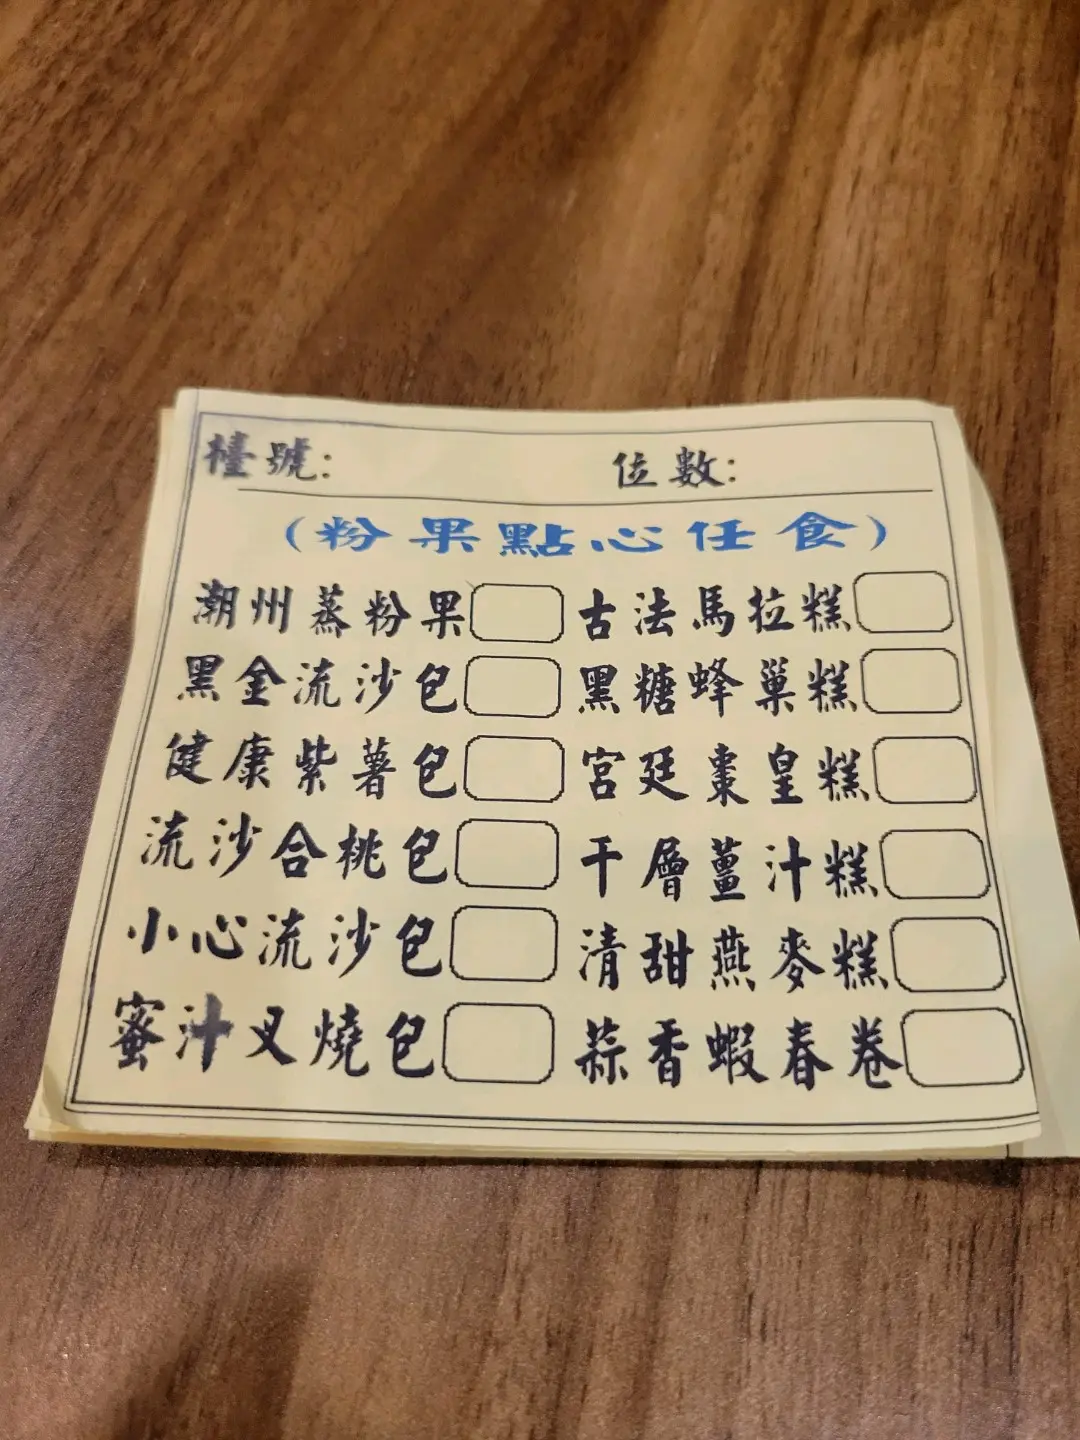 檯號: 位數:
(粉果點心任食)
潮州蒸粉果 古法馬拉糕
黑金流沙包 黑糖蜂巢糕
健康紫薯包 宮廷棗皇糕
流沙合桃包 千層薑汁糕
小心流沙包 清甜燕麥糕
蜜汁叉燒包 蒜香蝦春卷